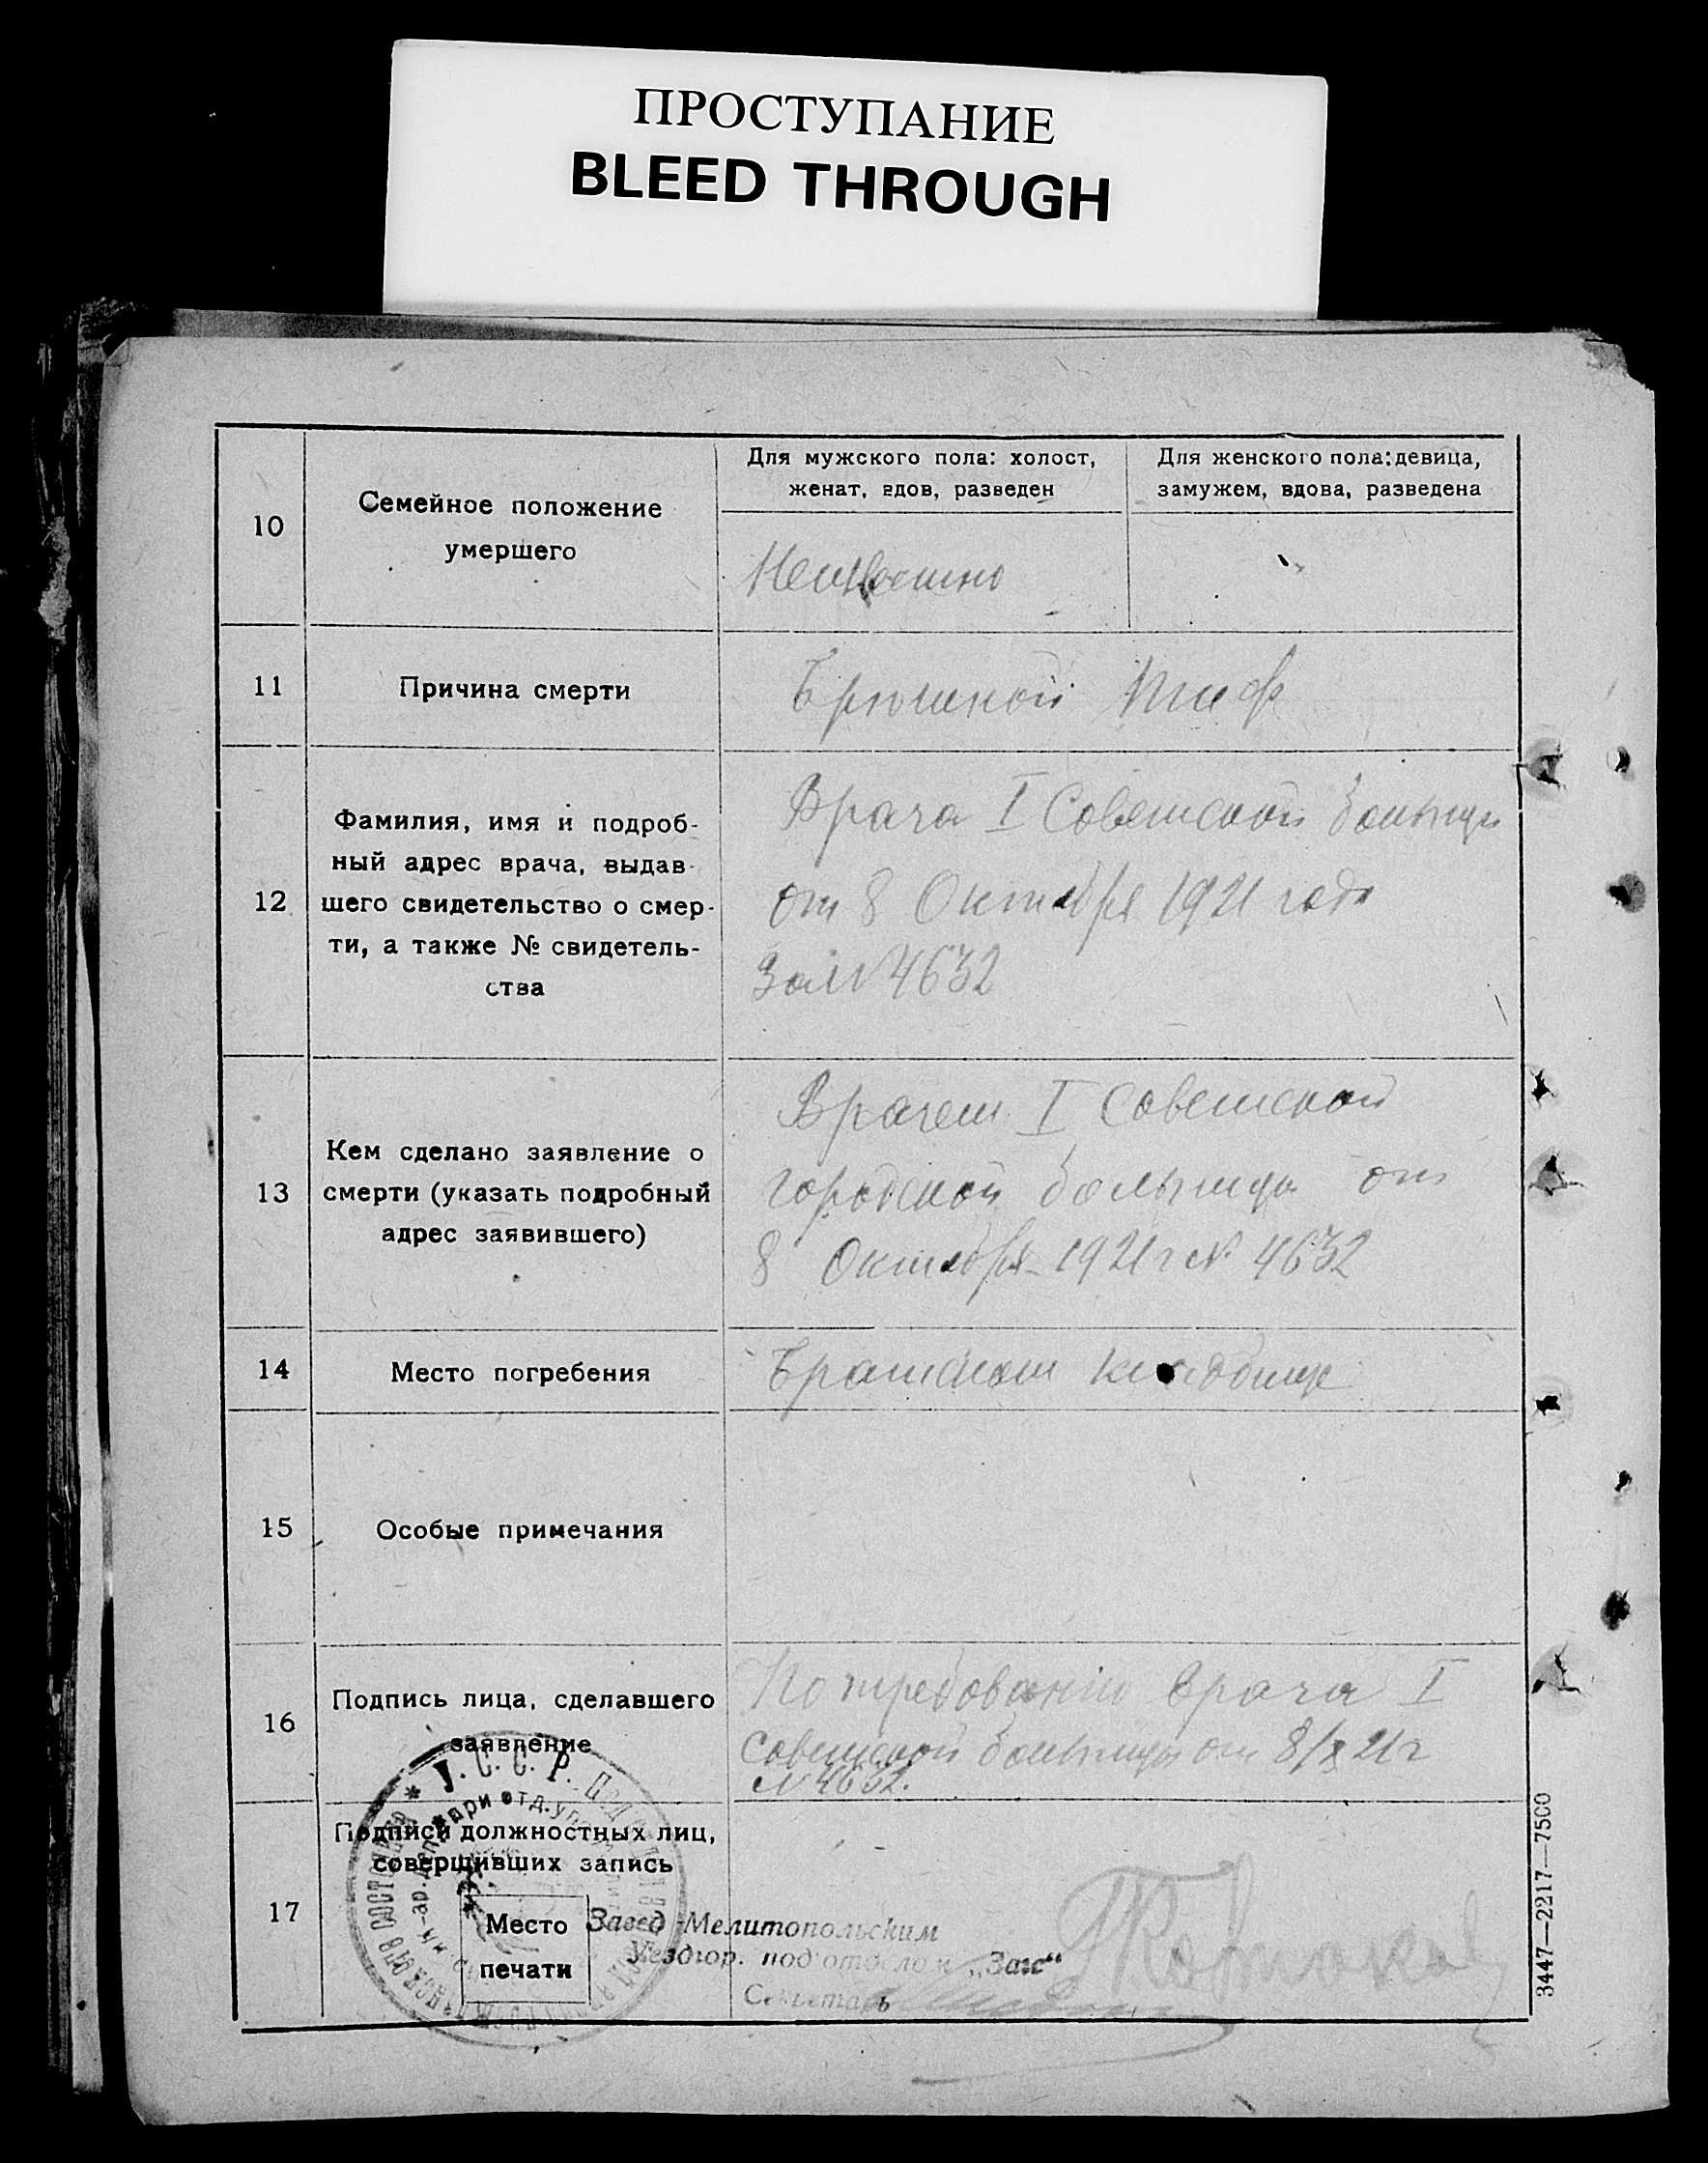 ПРОСТУПАНИЕ
BLEED THROUGH
10
Семейное положение
умершего
Для мужского пола: холост,
женат, вдов, разведен
Для женского пола: девица,
замужем, вдова, разведена
Неизвестно
11
Причина смерти
Брюшной тиф
12
Фамилия, имя и подроб-
ный адрес врача, выдав-
шего свидетельство о смер-
ти, а также № свидетель-
ства
Врача I Советской больницы
от 8 Октября 1921 года
За № 4632
13
Кем сделано заявление о
смерти (указать подробный
адрес заявившего)
Врачем I Советской
городской больницы от
8 Октября 1921 г № 4632
14
Место погребения
Братском кладбище
15
Особые примечания
16
Подпись лица, сделавшего
заявление
По требованію врача I
Советской больницы от 8/X 21 г
№ 4632.
17
Подписи должностных лиц,
совершивших запись
Место
печати
У.С.С.Р.
Завед. Мелитопольским
Уездгор. под'отделом „Загс“
Секретарь
3447—2217—7500